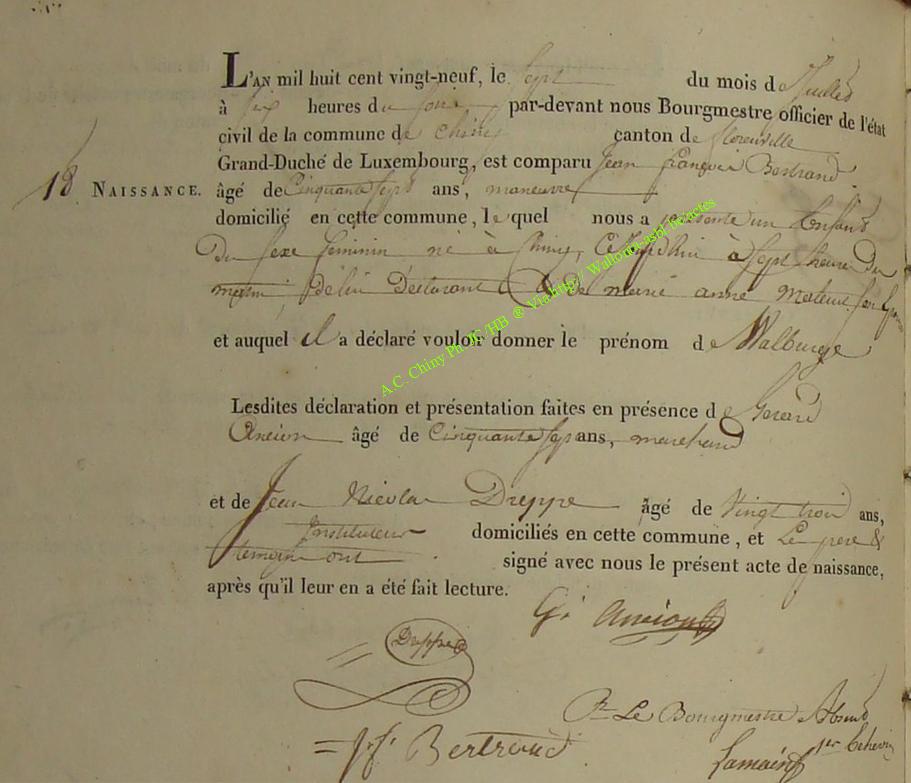 L'AN mil huit cent vingt-neuf, le sept du mois de Juillet
à six heures du soir par-devant nous Bourgmestre officier de l'état
civil de la commune de Chiny canton de florenville
Grand-Duché de Luxembourg, est comparu Jean françois Bertrand
18 NAISSANCE. âgé de Cinquante sept ans, maneuvre
domicilié en cette commune, lequel nous a présenté un Enfant
Du sexe feminin né à Chiny, à sept heure Du
matin De lui Déclarant & De marie anne
et auquel il a déclaré vouloir donner le prénom de Walburge
A.C. Chiny Ph. HB ® Viabtig / Wallonie asbl Geactes
Lesdites déclaration et présentation faites en présence de Gerard
Ancion âgé de Cinquante sept ans, marchand
et de Jean Nicolas Dreppe âgé de Vingt trois ans,
Instituteur domiciliés en cette commune, et Le pere &
temoin ont signé avec nous le présent acte de naissance,
après qu'il leur en a été fait lecture.
Gd Ancion
Dreppe
Pr Le Bourgmestre Absent
1er Echevin
J. f. Bertrand
Lamain